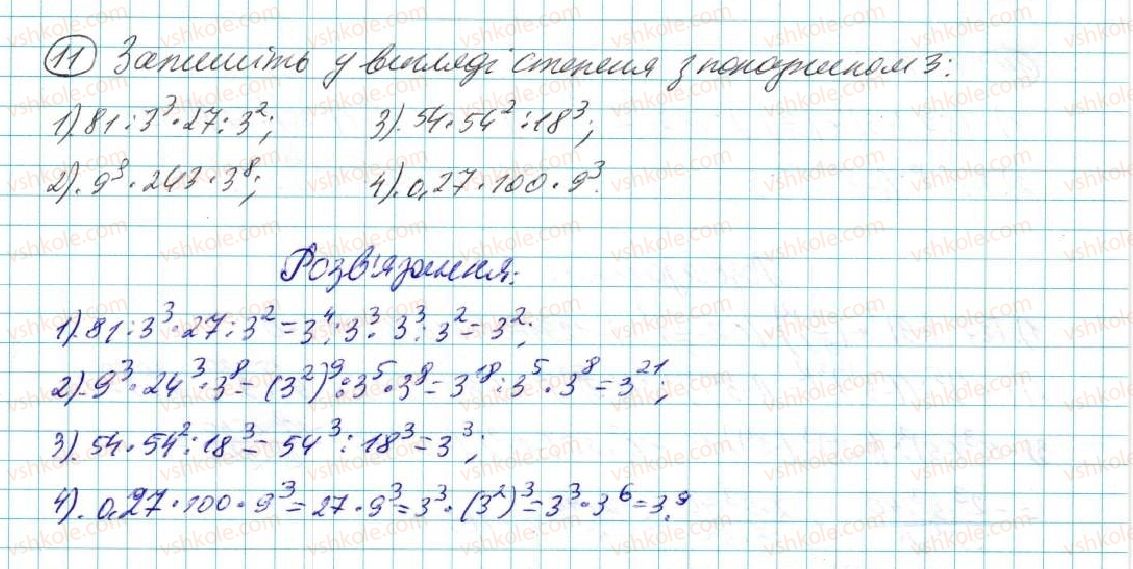 11 Запишіть у вигляді степеня з показником 3:
1). 81 : 3³ · 27 : 3²;    3). 54 · 54² : 18³;
2). 9⁹ · 243 · 3⁸;    4). 0,27 · 100 · 9³.
Розв'язання:
1). 81 : 3³ · 27 : 3² = 3⁴ : 3³ · 3³ : 3² = 3²;
2). 9³ · 24³ · 3⁸ = (3²)⁹ : 3⁵ · 3⁸ = 3¹⁸ : 3⁵ · 3⁸ = 3²¹;
3). 54 · 54² : 18³ = 54³ : 18³ = 3³;
4). 0,27 · 100 · 9³ = 27 · 9³ = 3³ · (3²)³ = 3³ · 3⁶ = 3⁹.